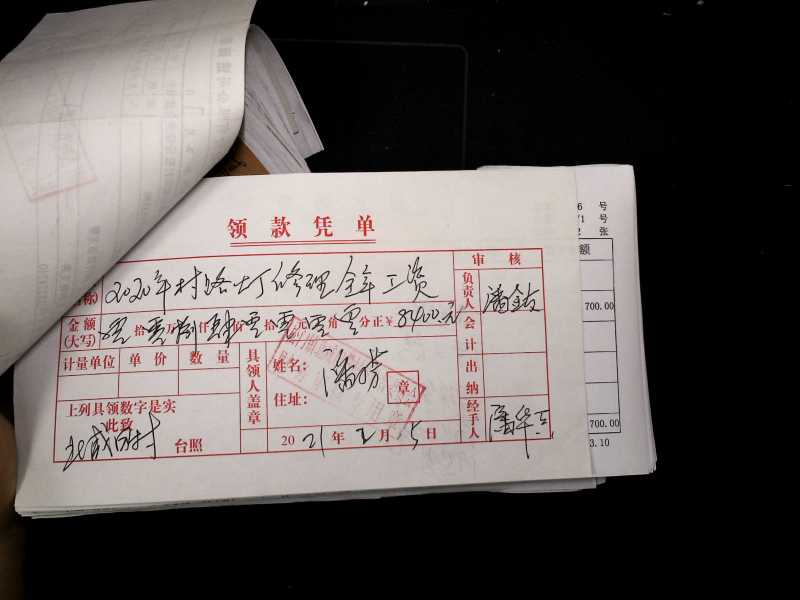 6 号
号
张
额
700.00
700.00
3.10
领款凭单
审核
称)
2020年村路灯修理全年工资
负责人
潘金友
金额(大写)
零拾零万捌仟肆佰零拾零元零角零分正¥8400元
会计
计量单位 单价 数量
具领人盖章
姓名:
潘
住址:
章
出纳
上列具领数字是实
此致
村
台照
2021年2月15日
经手人
潘华